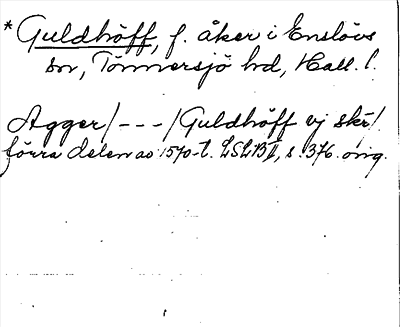 * Guldhöff, f. åker i Enslövs
sn, Tönnersjö hd, Hall. l.
Agger /---/ Guldhöff ej skt/.
förra delen av 1570-t. LSLBA, s. 376. orig.